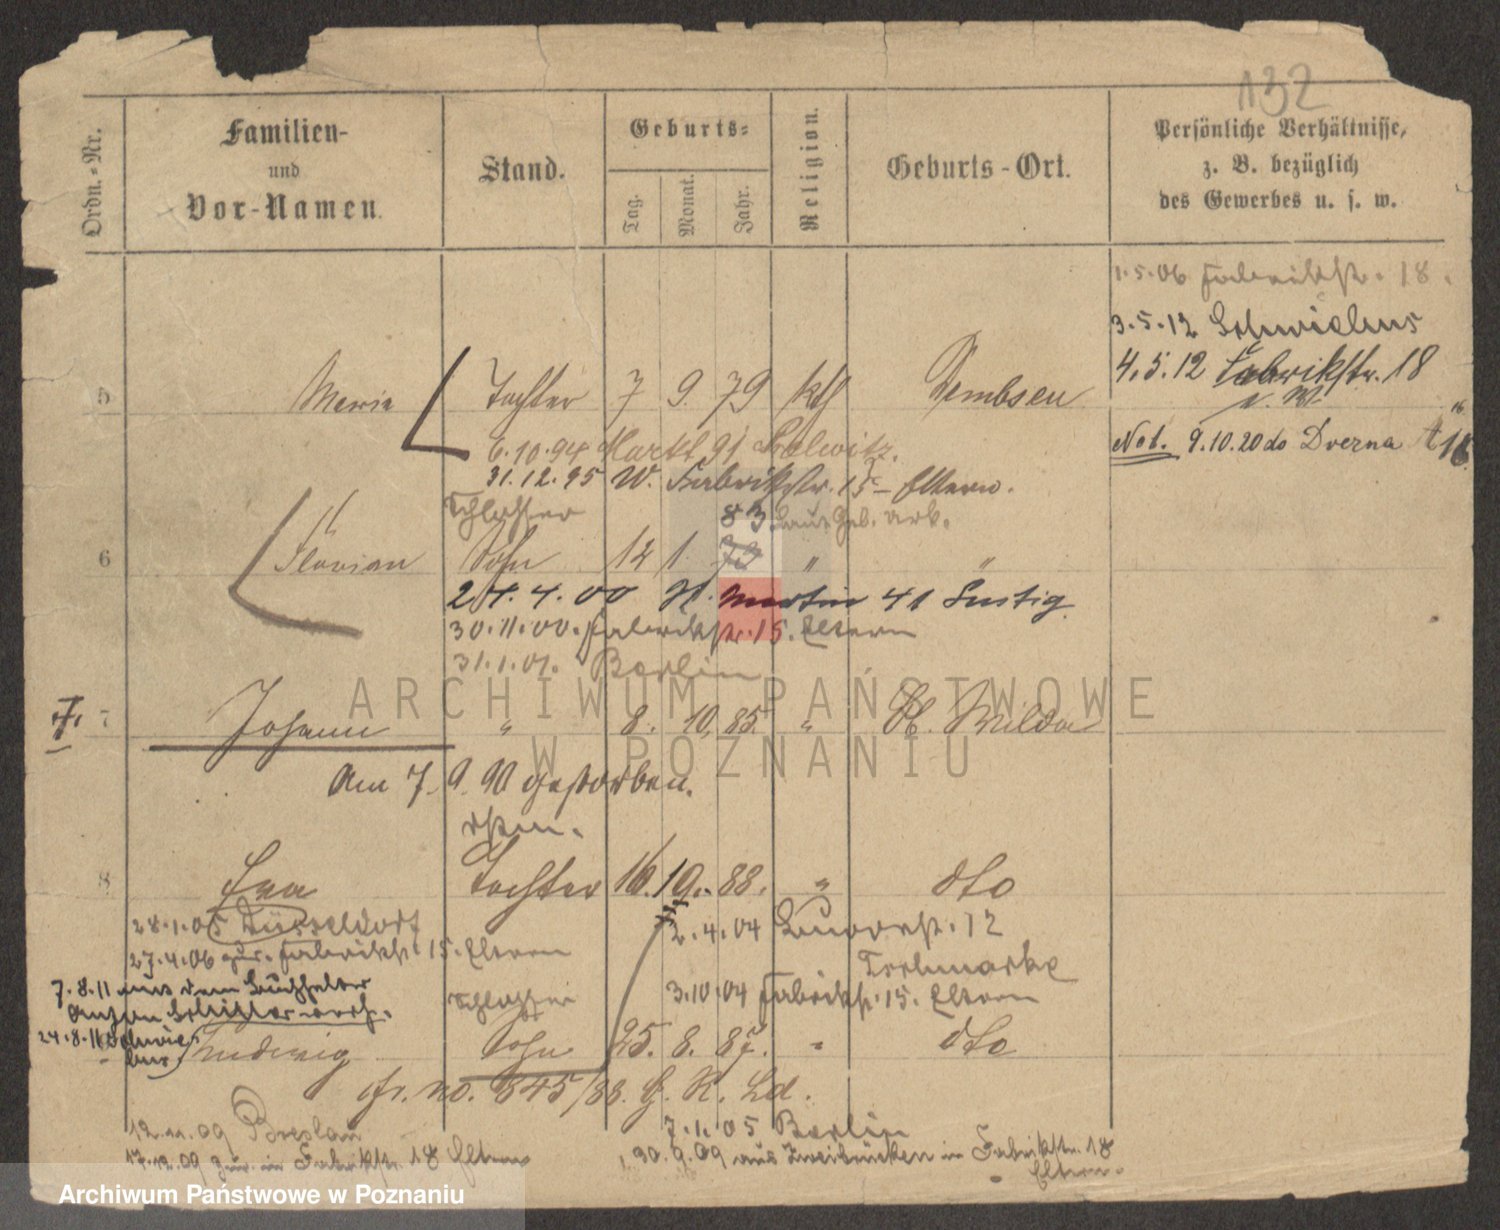 132
Ordn.-Nr.
Familien-
und
Vor-Namen.
Stand.
Geburts-
Tag.
Monat.
Jahr.
Religion.
Geburts-Ort.
Persönliche Verhältnisse,
z. B. bezüglich
des Gewerbes u. s. w.
1.5.06 Fabrikstr. 18.
3.5.12 Schwiebus
4.5.12 Fabrikstr. 18
Not. 9.10.20 do
5 Maria Tochter 7 9. 79 kth Dembsen
6.10.94 Markt 91
31.12.95 W. Fabrikstr. 15 - Eltern.
Schlosser 83 laut Geb. Urk.
6 Florian Sohn 12 1. 73 " "
24.4.00 H. Martin 41 Lustig
30.11.00. Fabrikstr. 15. Eltern
31.1.01. Berlin
7 Johann " 8. 10. 85. " Wilda
Am 7. 9. 90 gestorben.
8 Eva Tochter 16. 10. 88. " dto
28.1.05 Düsseldorf 2.4.04 12
27.4.06 zur. Fabrikstr. 15. Eltern
7.8.11 aus dem Buchhalter Schlosser 3.10.04 Fabrikstr. 15. Eltern
24.8.11 Schwiebus Ludwig Sohn 25. 8. 87. " dto
fr. no. 845/88. G. K. Ld.
12.11.09 Breslau 7.1.05 Berlin
17.12.09 zur. in Fabrikstr. 18 Eltern 30.9.09 aus Zweibrücken in Fabrikstr. 18
Eltern.
ARCHIWUM PAŃSTWOWE
W POZNANIU
Archiwum Państwowe w Poznaniu